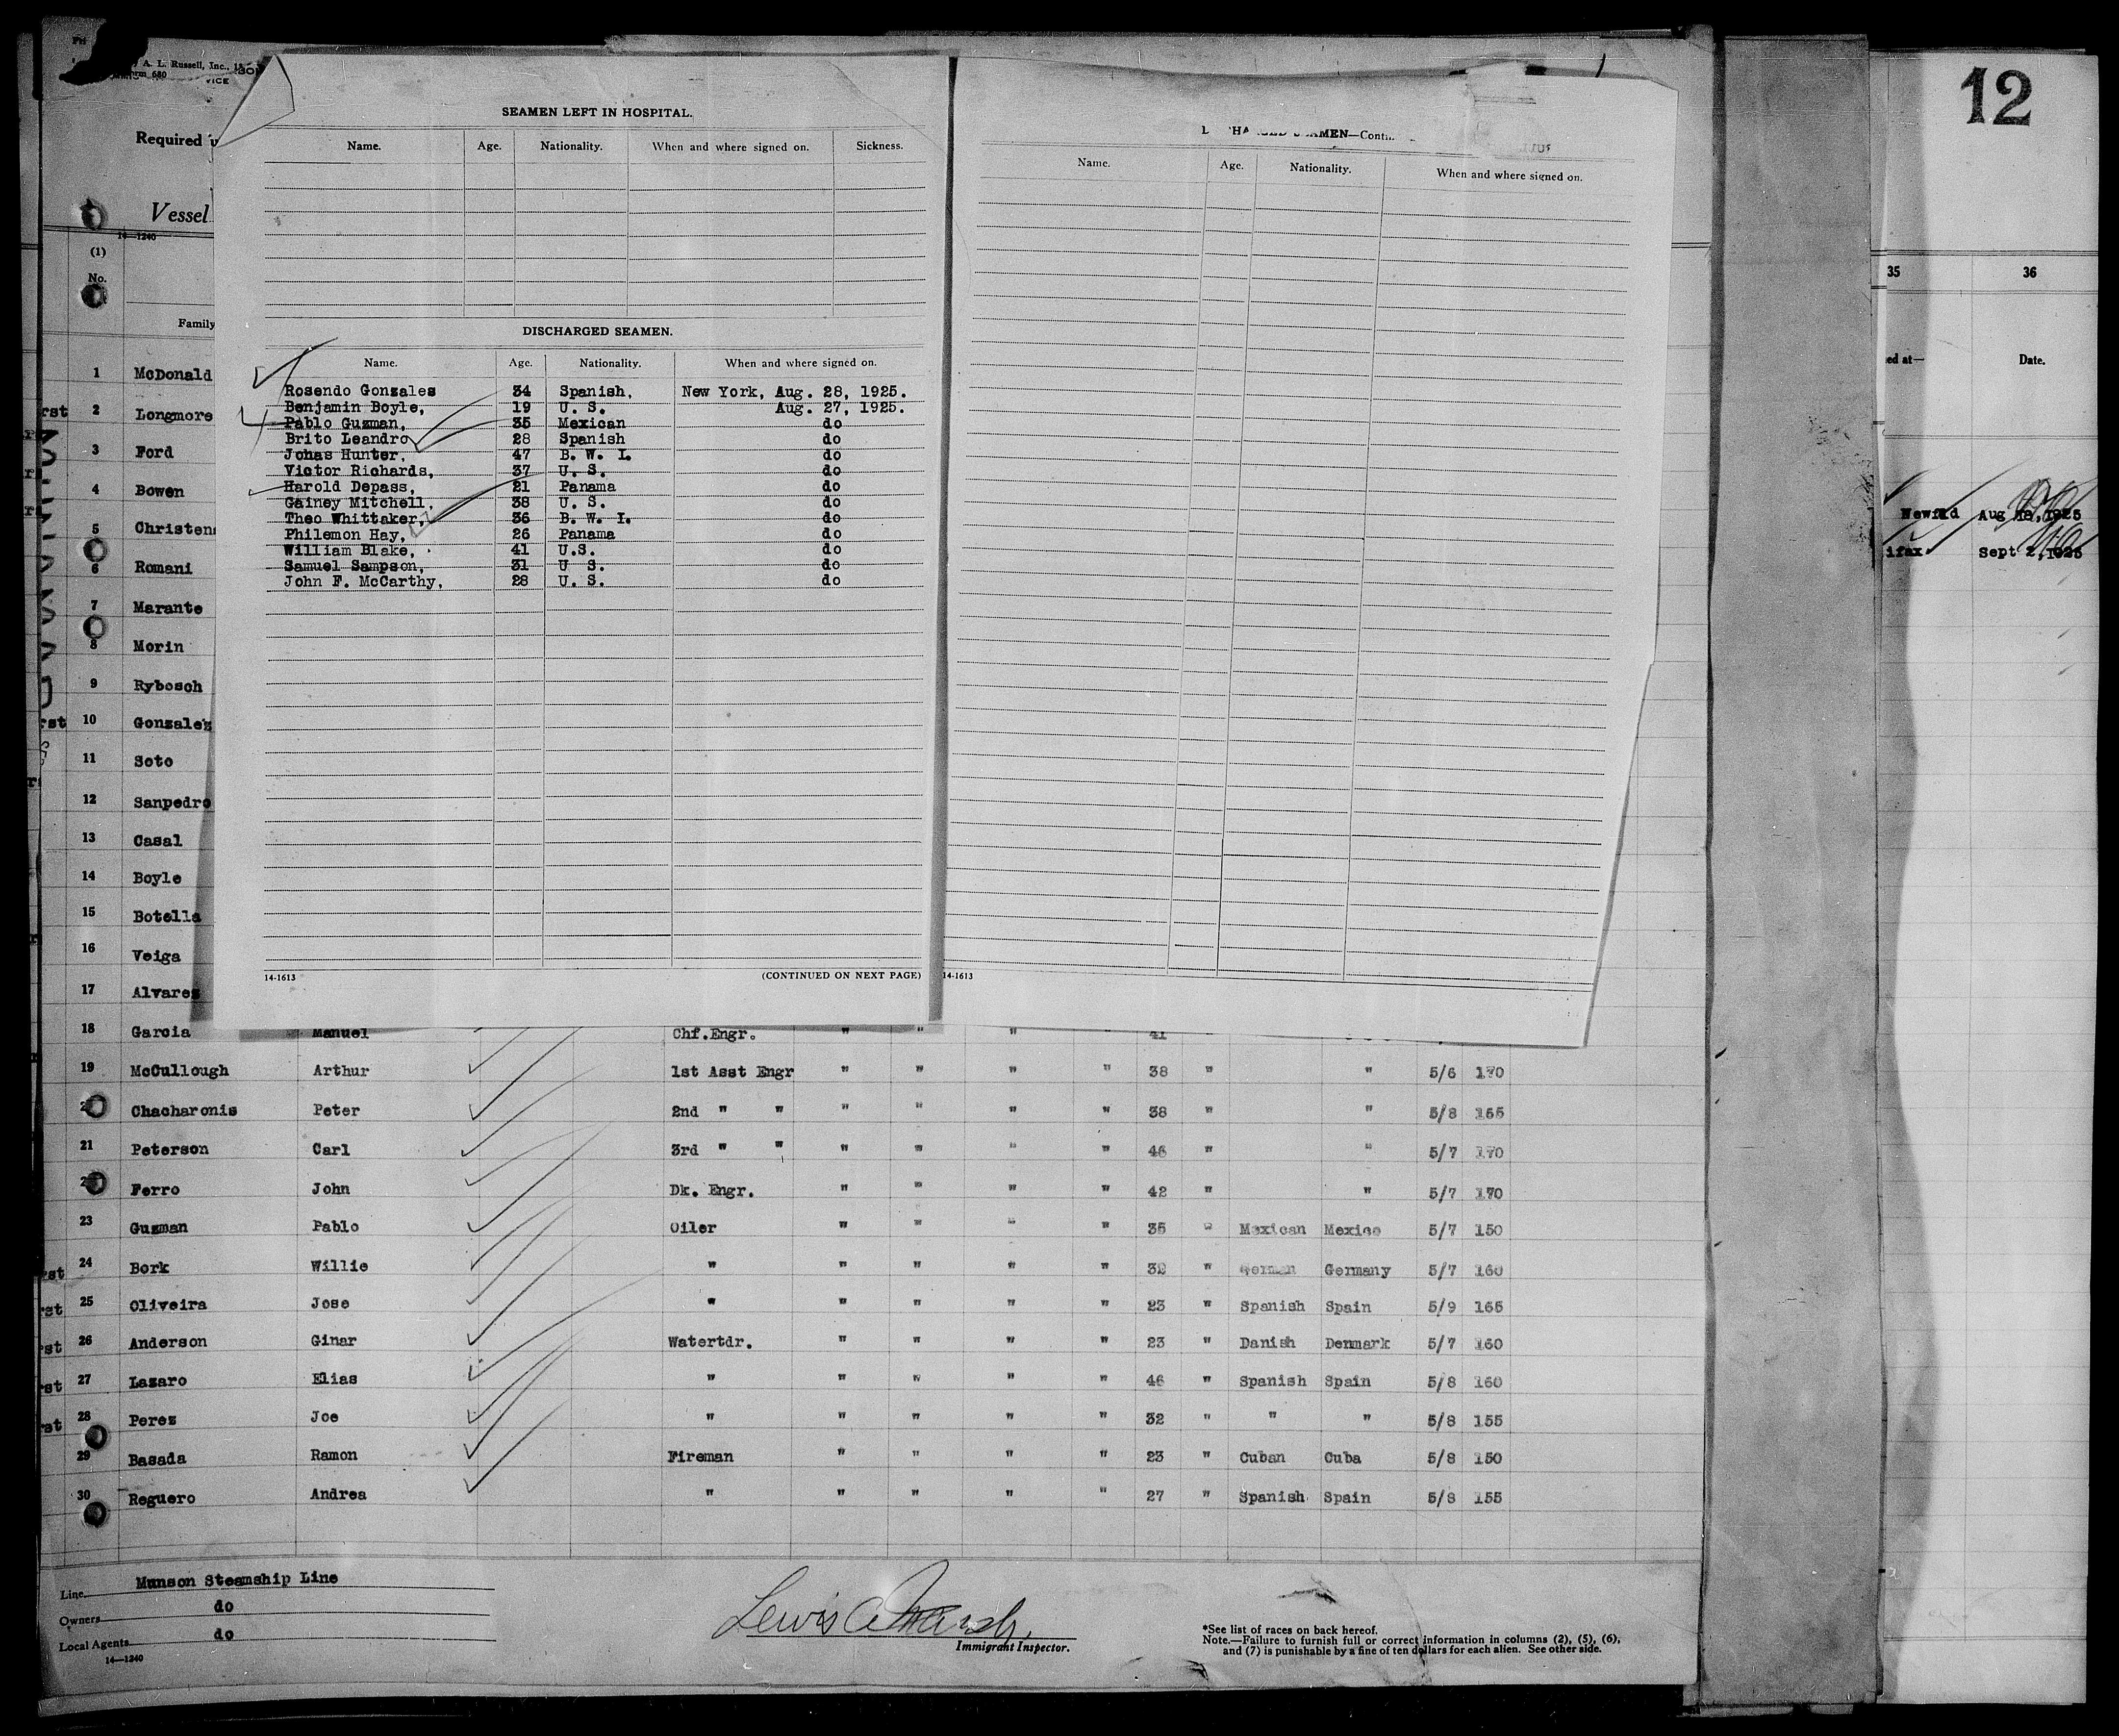 A. L. Russell, Inc.,
680
VICE
Required
Vessel
14—1240
(1)
No.
Family
SEAMEN LEFT IN HOSPITAL.
Name. Age. Nationality. When and where signed on. Sickness.
DISCHARGED SEAMEN.
Name. Age. Nationality. When and where signed on.
Rosendo Gonzales 34 Spanish, New York, Aug. 28, 1925.
Benjamin Boyle, 19 U. S. Aug. 27, 1925.
Pablo Guzman, 35 Mexican do
Brito Leandro 28 Spanish do
Johas Hunter, 47 B. W. I. do
Victor Richards, 37 U. S. do
Harold Depass, 21 Panama do
Gainey Mitchell, 38 U. S. do
Theo Whittaker, 36 B. W. I. do
Philemon Hay, 26 Panama do
William Blake, 41 U.S. do
Samuel Sampson, 31 U S. do
John F. McCarthy, 28 U. S. do
14-1613 (CONTINUED ON NEXT PAGE)
AMEN—Contn.
Name. Age. Nationality. When and where signed on.
14-1613
12
35 36
ed at— Date.
Newfld Aug 1925
ifax Sept 2, 1925
1 McDonald
rst 2 Longmore
3 Ford
4 Bowen
5 Christens
6 Romani
7 Marante
8 Morin
9 Rybosch
rst 10 Gonzalez
11 Soto
12 Sanpedro
13 Casal
14 Boyle
15 Botella
16 Veiga
17 Alvarez
18 Garcia Manuel Chf.Engr. " " " 41
19 McCullough Arthur 1st Asst Engr " " " " 38 " " 5/6 170
Chacharonis Peter 2nd " " " " " " 38 " " 5/8 165
21 Peterson Carl 3rd " " " " " " 46 " " 5/7 170
Ferro John Dk. Engr. " " " " 42 " " 5/7 170
23 Guzman Pablo Oiler " " " " 35 " Mexican Mexico 5/7 150
rst 24 Bork Willie " " " " " 32 " German Germany 5/7 160
rst 25 Oliveira Jose " " " " " 23 " Spanish Spain 5/9 165
rst 26 Anderson Ginar Watertdr. " " " " 23 " Danish Denmark 5/7 160
rst 27 Lazaro Elias " " " " " 46 " Spanish Spain 5/8 160
rst 28 Perez Joe " " " " " 32 " " " 5/8 155
29 Basada Ramon Fireman " " " " 23 " Cuban Cuba 5/8 150
30 Reguero Andrea " " " " " 27 " Spanish Spain 5/8 155
Line Munson Steamship Line
Owners do
Local Agents do
14—1240
Lewis
Immigrant Inspector.
*See list of races on back hereof.
Note.—Failure to furnish full or correct information in columns (2), (5), (6),
and (7) is punishable by a fine of ten dollars for each alien. See other side.